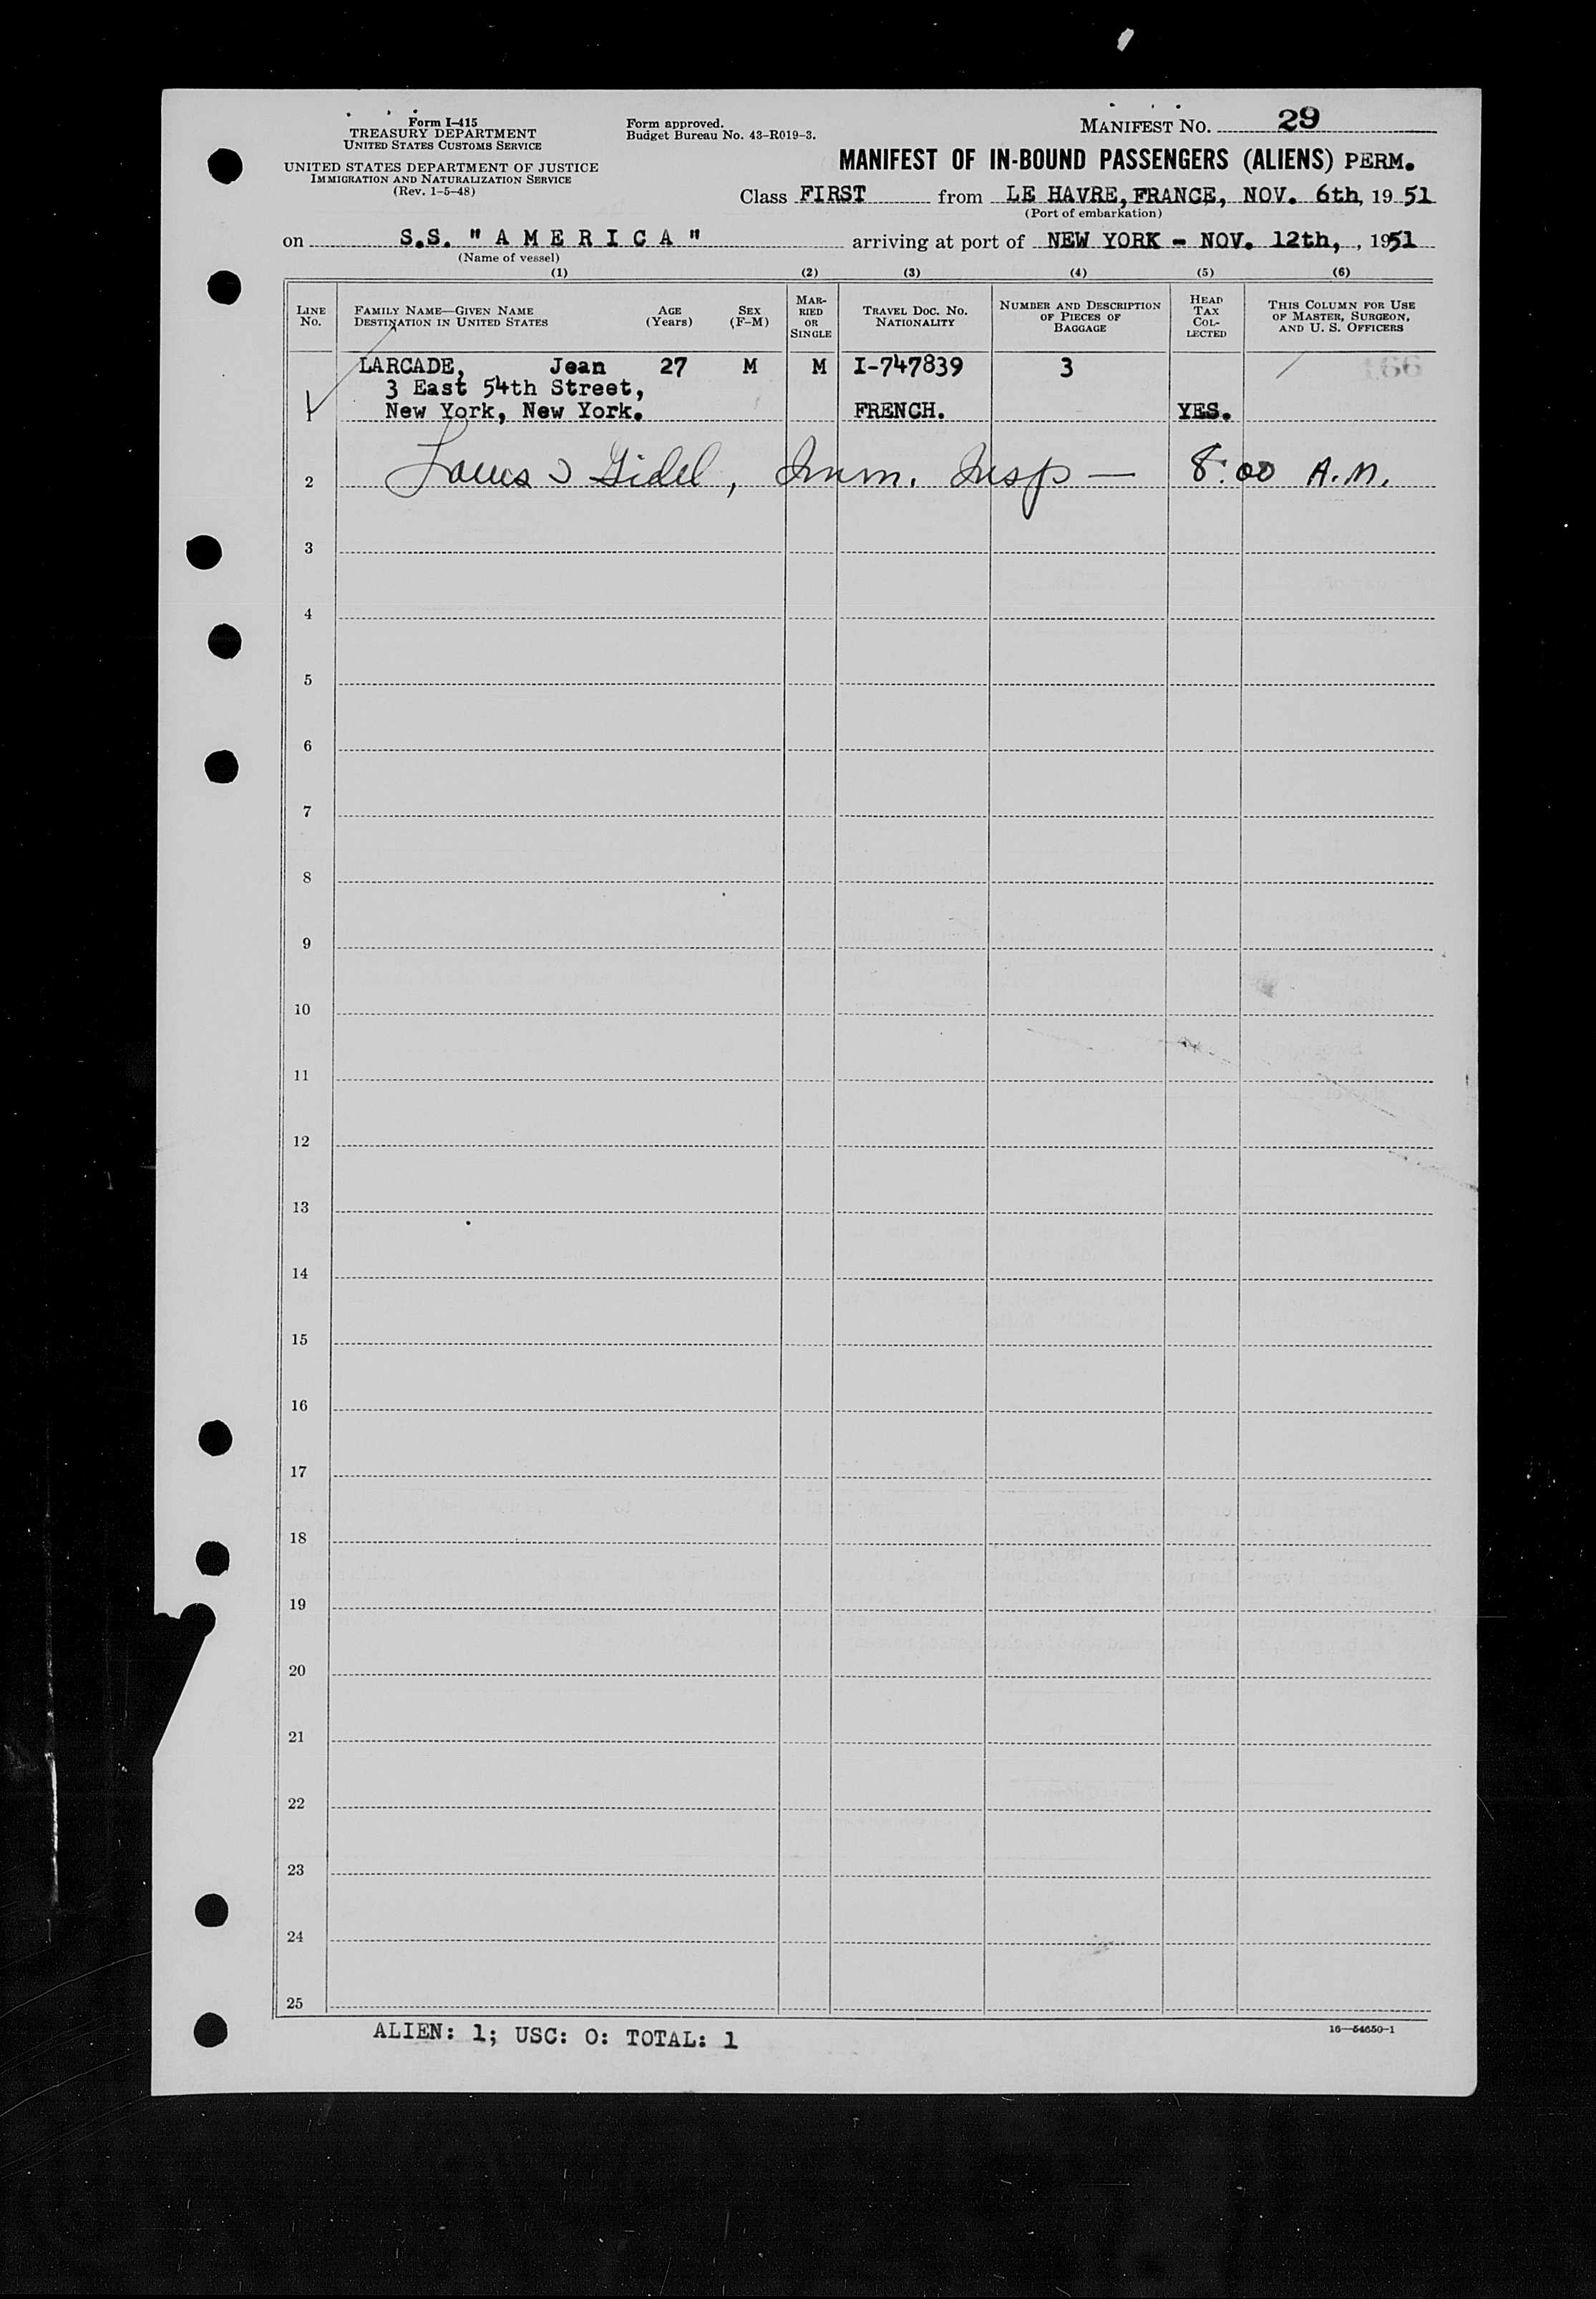 Form I-415
TREASURY DEPARTMENT
UNITED STATES CUSTOMS SERVICE
UNITED STATES DEPARTMENT OF JUSTICE
IMMIGRATION AND NATURALIZATION SERVICE
(Rev. 1-5-48)
Form approved.
Budget Bureau No. 43-R019-3.
MANIFEST NO. 29
MANIFEST OF IN-BOUND PASSENGERS (ALIENS) PERM.
Class FIRST from LE HAVRE, FRANCE, NOV. 6th, 1951
(Port of embarkation)
on S.S. "AMERICA" arriving at port of NEW YORK - NOV. 12th, , 1951
(Name of vessel)
(1) (2) (3) (4) (5) (6)
LINE No.
FAMILY NAME—GIVEN NAME
DESTINATION IN UNITED STATES
AGE (Years)
SEX (F-M)
MARRIED OR SINGLE
TRAVEL DOC. NO.
NATIONALITY
NUMBER AND DESCRIPTION OF PIECES OF BAGGAGE
HEAD TAX COLLECTED
THIS COLUMN FOR USE OF MASTER, SURGEON, AND U. S. OFFICERS
LARCADE, Jean 27 M M I-747839 3
3 East 54th Street,
1 New York, New York. FRENCH. YES.
2 Gidel, Imm. Insp — 8:00 A.M.
3
4
5
6
7
8
9
10
11
12
13
14
15
16
17
18
19
20
21
22
23
24
25
ALIEN: 1; USC: 0: TOTAL: 1
16—54650-1